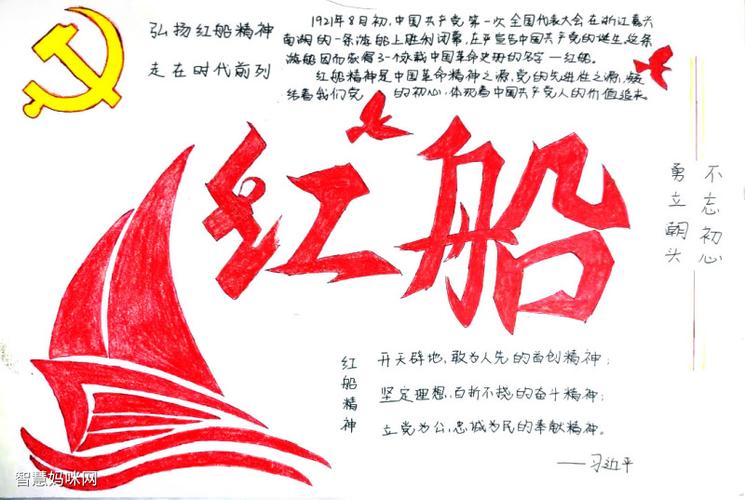 弘扬红船精神
走在时代前列
1921年8月初,中国共产党第一次全国代表大会在浙江嘉兴
南湖的一条游船上胜利闭幕,庄严宣告中国共产党的诞生。这条
游船因而获得了一个永载中国革命史册的名字—红船。
红船精神是中国革命精神之源,党的先进性之源,凝
结着我们党 的初心,体现着中国共产党人的价值追求。
红船
不忘初心
勇立朝头
红船精神
开天辟地,敢为人先的首创精神;
坚定理想,百折不挠的奋斗精神;
立党为公,忠诚为民的奉献精神。
——习近平
智慧妈咪网